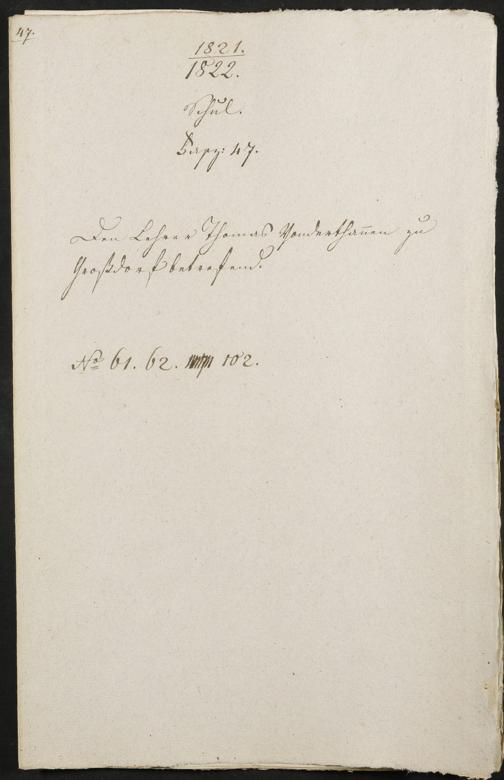 47.
1821.
1822.
Schul.
Fasz: 47.
Den Lehrer Thomas Vonderthannen zu
Großdorf betreffend.
No 61. 62. 102.